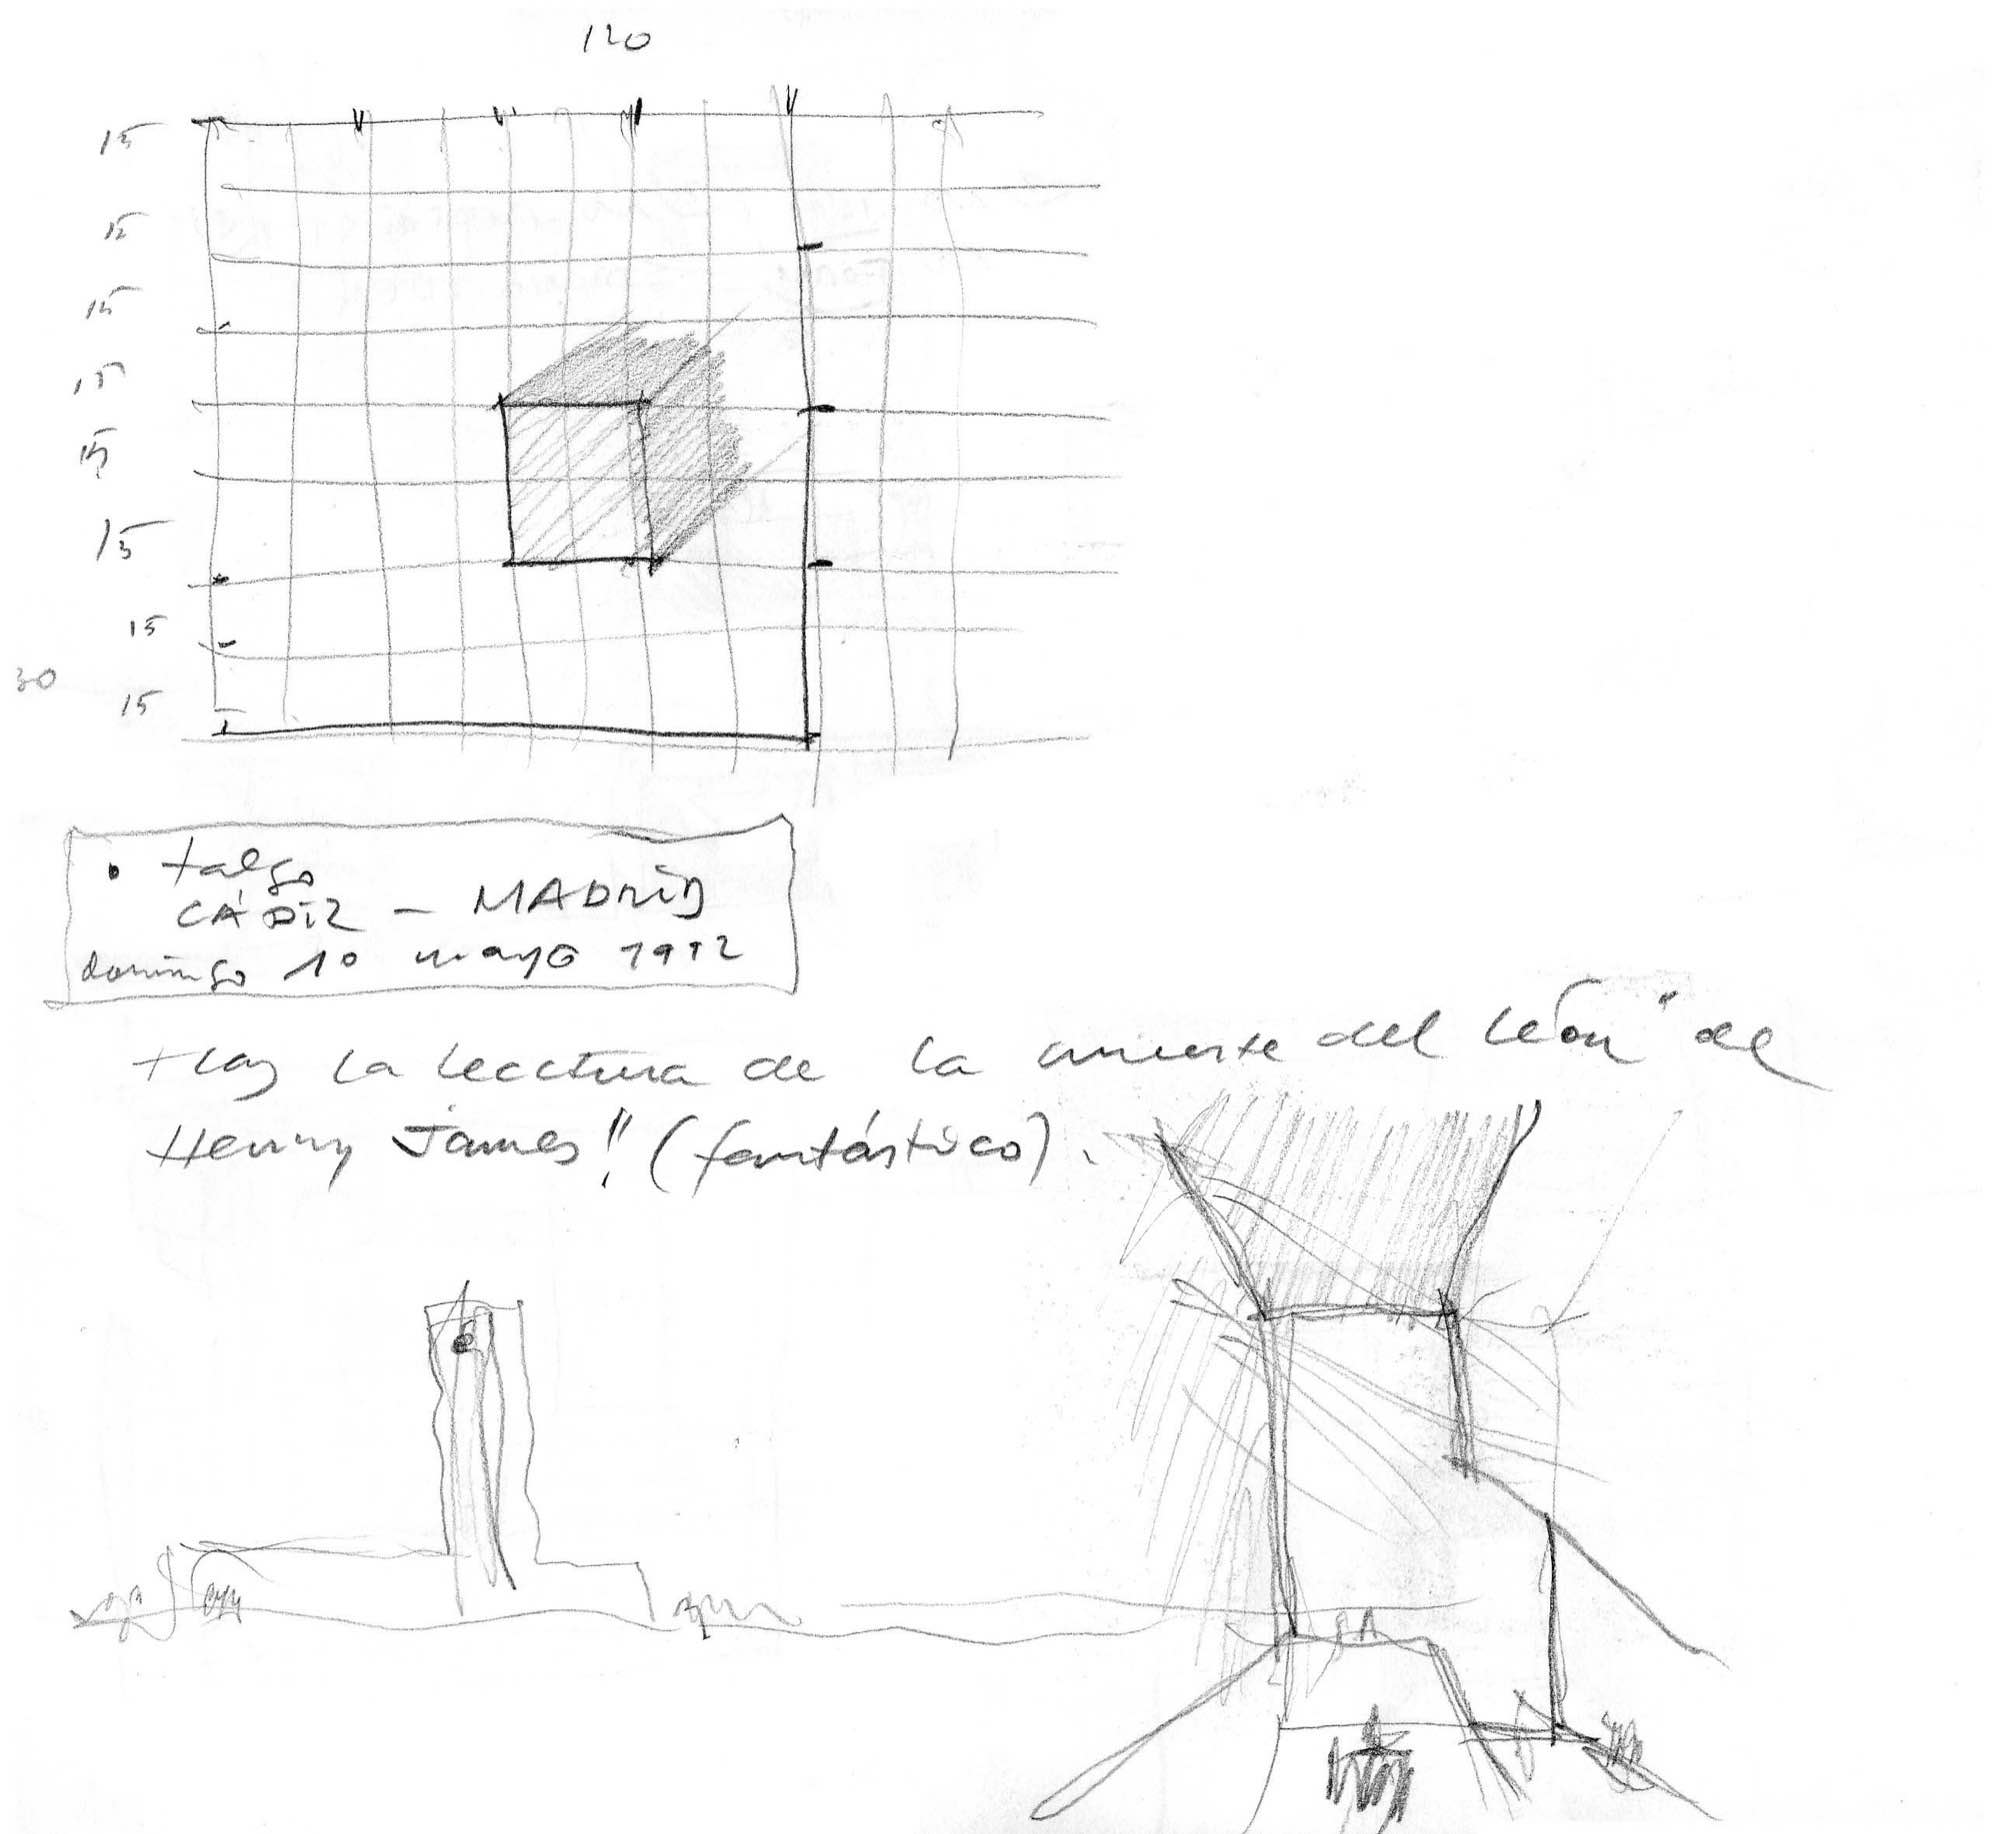 120
15
15
15
15
15
15
15
30
15
• talgo
CÁDIZ – MADRID
domingo 10 mayo 1992
Tras la lectura de la muerte del león" de
Henry James!! (fantástico).